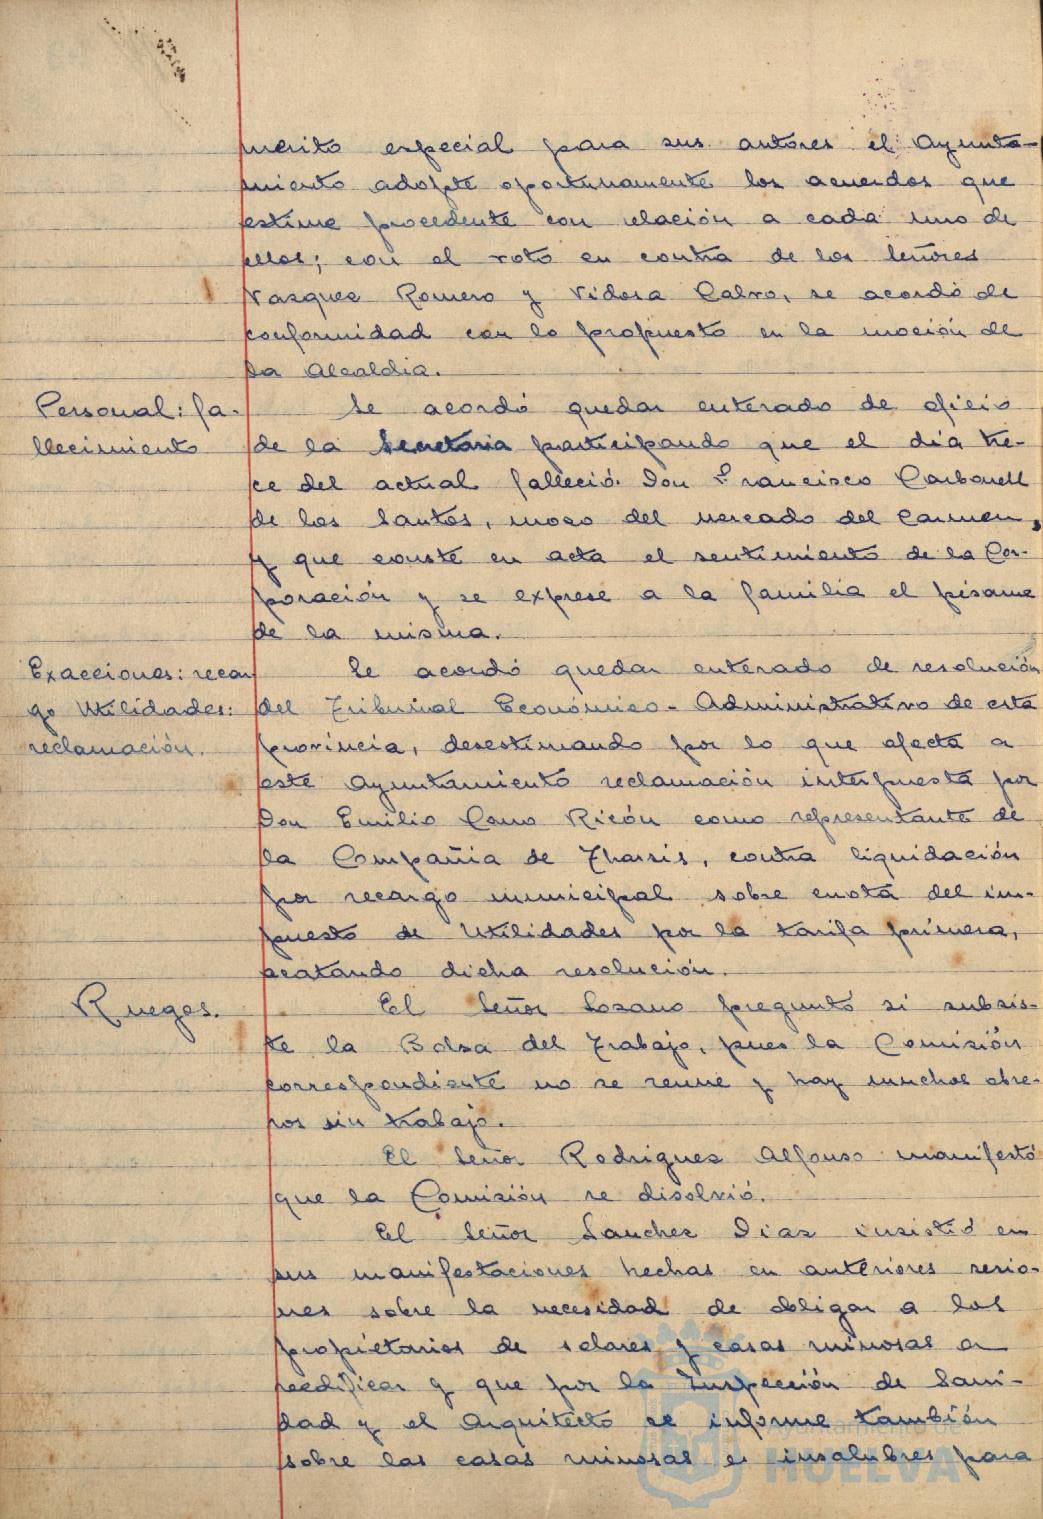 merito especial para sus autores el Ayunta-
miento adopte oportunamente los acuerdos que
estime procedente con relación a cada uno de
ellos; con el voto en contra de los Señores
Vazquez Romero y Vidosa Calvo, se acordó de
conformidad con lo propuesto en la moción de
la Alcaldia.
Personal: fa-
llecimiento
Se acordó quedar enterado de oficio
de la Secretaria participando que el dia tre-
ce del actual falleció Don Francisco Carbonell
de los Santos, mozo del mercado del Carmen,
y que conste en acta el sentimiento de la Cor-
poración y se exprese a la familia el pésame
de la misma.
Exacciones: recar
go Utilidades:
reclamación.
Se acordó quedar enterado de resolución
del Tribunal Económico-Administrativo de esta
provincia, desestimando por lo que afecta a
este Ayuntamiento reclamación interpuesta por
Don Emilio Cano Ricón como representante de
la Compañia de Tharsis, contra liquidación
por recargo municipal sobre cuota del im-
puesto de Utilidades por la tarifa primera,
acatando dicha resolución.
Ruegos.
El Señor Lozano preguntó si subsis-
te la Bolsa del Trabajo, pues la Comisión
correspondiente no se reune y hay muchos obre-
ros sin trabajo.
El Señor Rodriguez Alfonso manifestó
que la Comisión se disolvió.
El Señor Sanchez Diaz insistió en
sus manifestaciones hechas en anteriores sesio-
nes sobre la necesidad de obligar a los
propietarios de solares y casas ruinosas a
reedificar y que por la Inspección de Sani-
dad y el Arquitecto se informe también
sobre las casas ruinosas e insalubres para
Ayuntamiento de
HUELVA